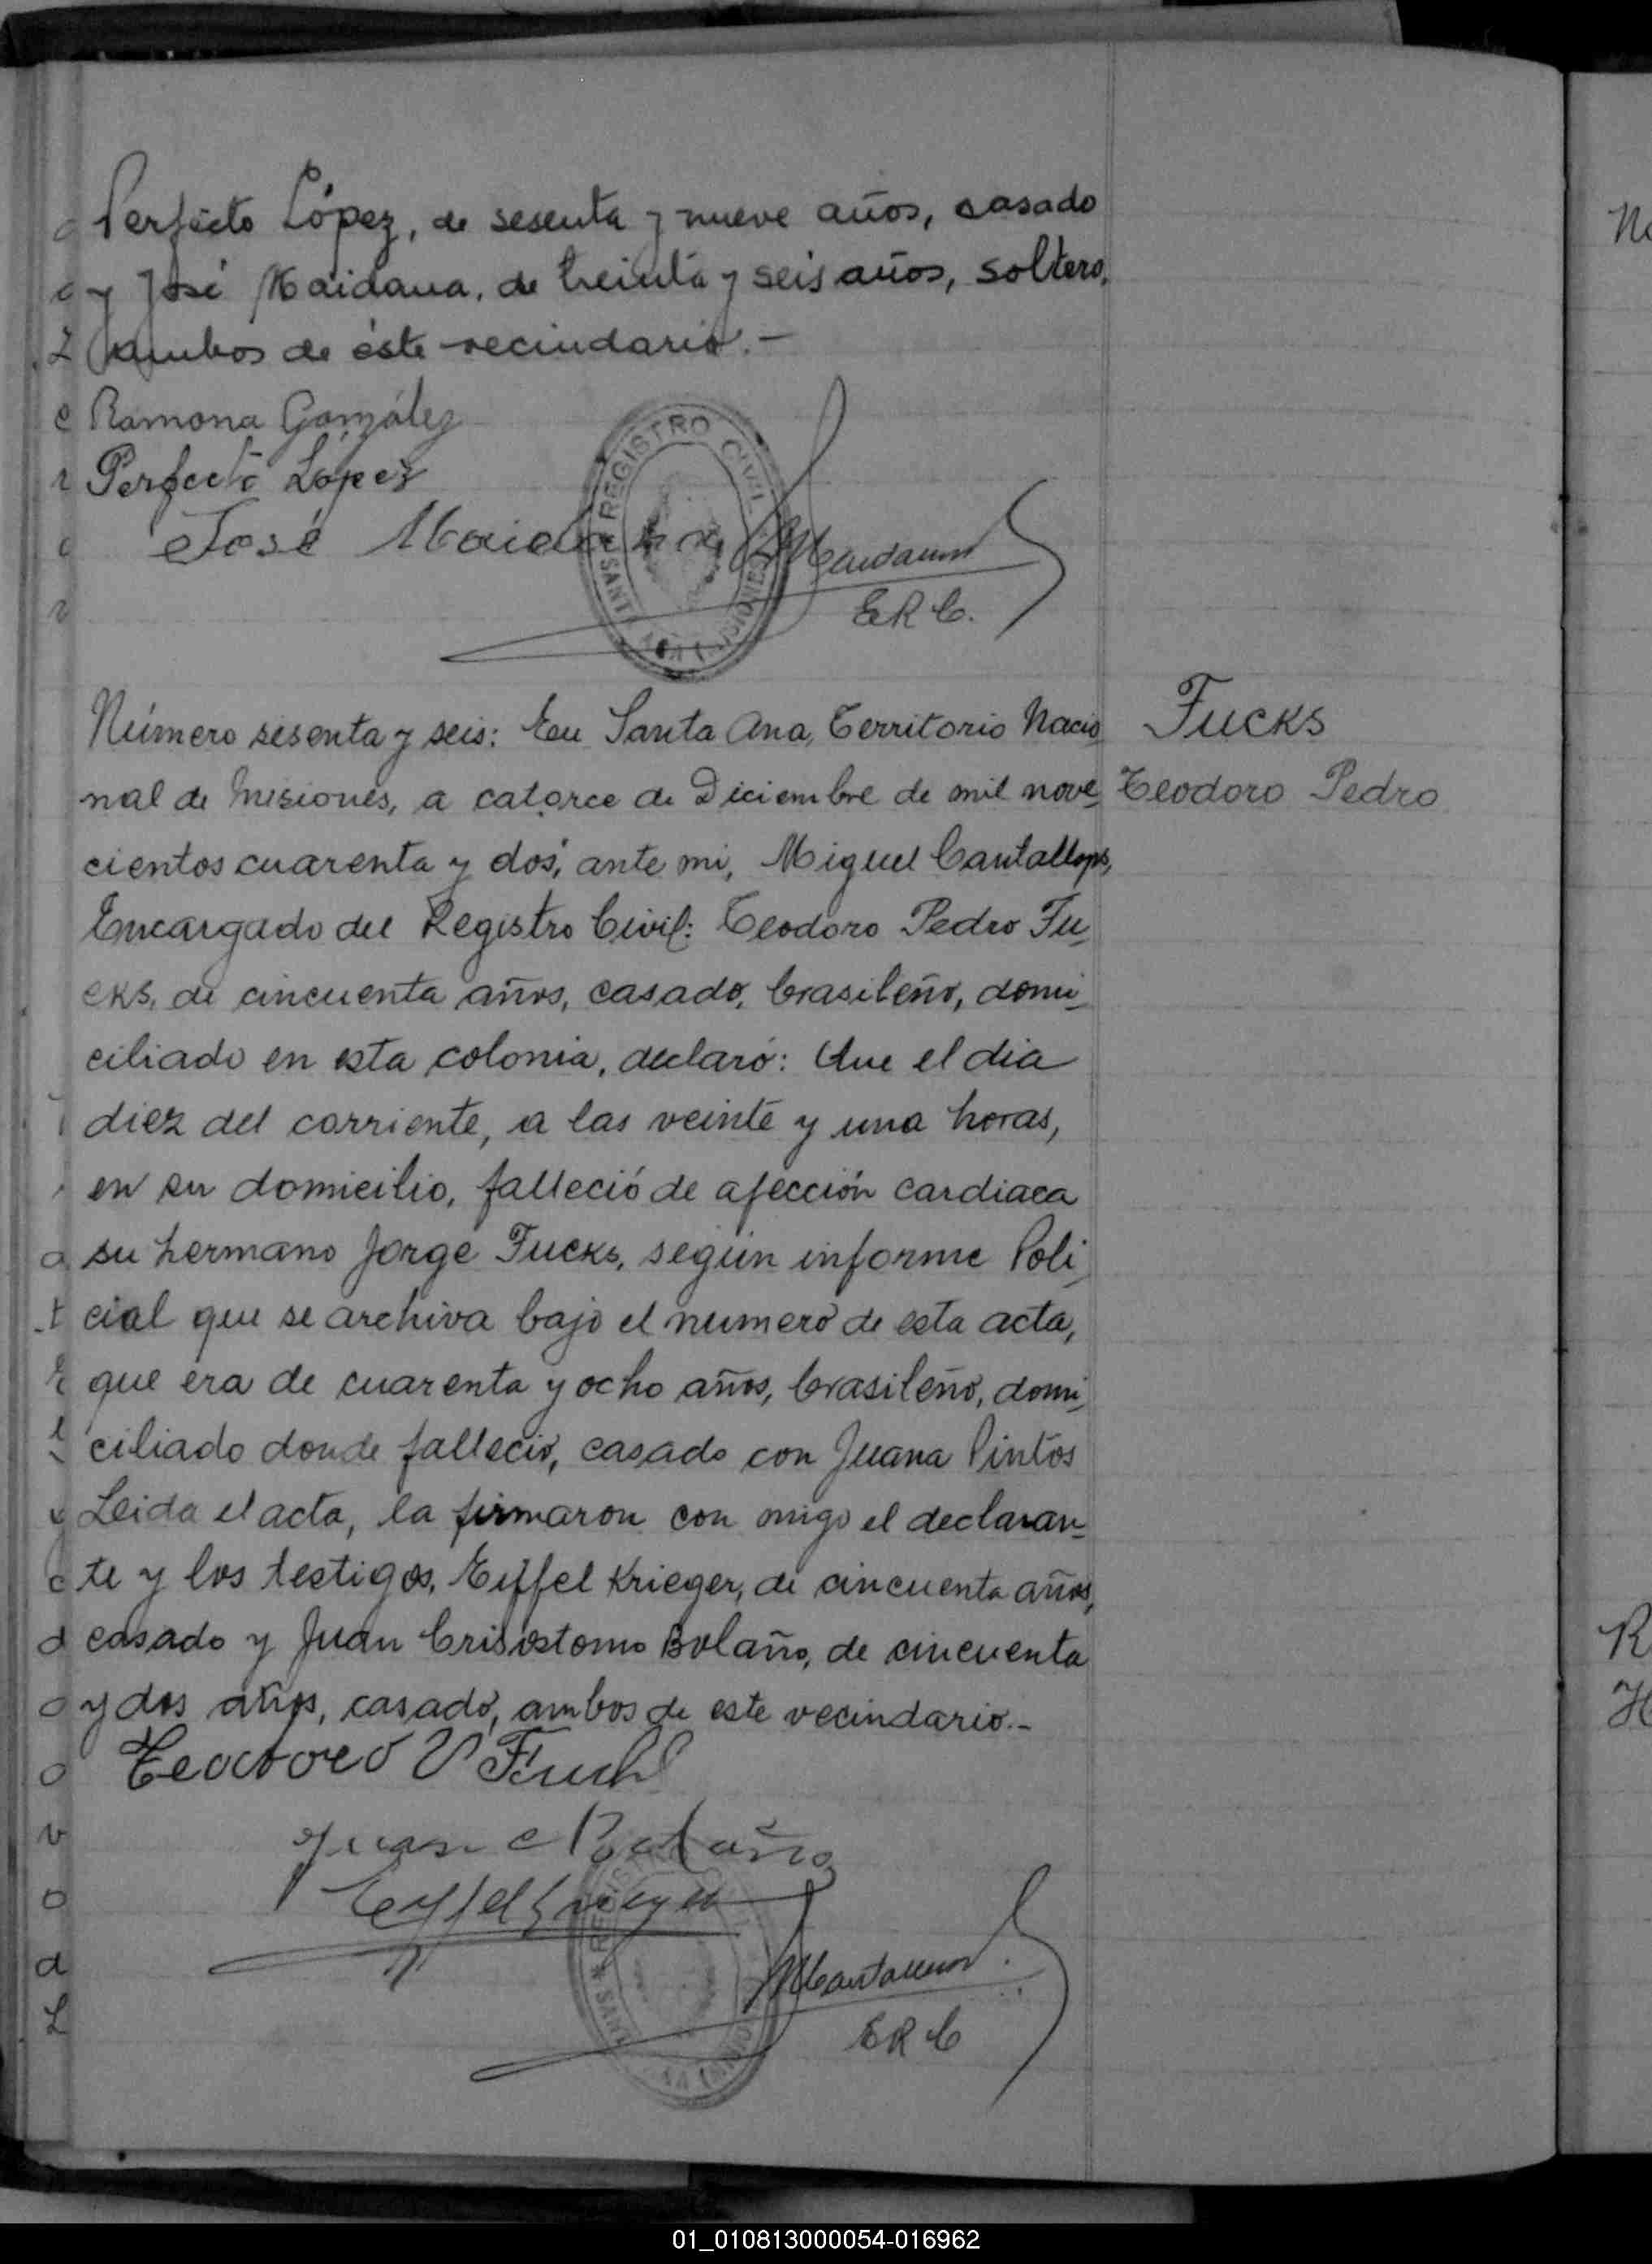 Perfecto López, de sesenta y nueve años, casado
y José Maidana, de treinta y seis años, soltero,
ambos de éste vecindario.-
Ramona González
Perfecto López
José Maidana
REGISTRO CIVIL
SANTA ANA (MISIONES)
E R C.
Número sesenta y seis: En Santa Ana, Territorio Nacio
Fucks
nal de Misiones, a catorce de Diciembre de mil nove
Teodoro Pedro
cientos cuarenta y dos, ante mi, Miguel Cantallops,
Encargado del Registro Civil: Teodoro Pedro Fu
cks, de cincuenta años, casado, brasileño, domi
ciliado en esta colonia, declaró: Que el dia
diez del corriente, a las veinte y una horas,
en su domicilio, falleció de afección cardiaca
su hermano Jorge Fucks, según informe Poli
cial que se archiva bajo el numero de esta acta,
que era de cuarenta y ocho años, brasileño, domi
ciliado donde falleció, casado con Juana Pintos
Leida el acta, la firmaron con migo el declaran-
te y los testigos, Eiffel Krieger, de cincuenta años,
casado y Juan Crisostomo Bolaño, de cincuenta
y dos años, casado, ambos de este vecindario.-
Teodoro P Fuchs
Juan C Bolaño
Eiffel Krieger
E R C
01_010813000054-016962